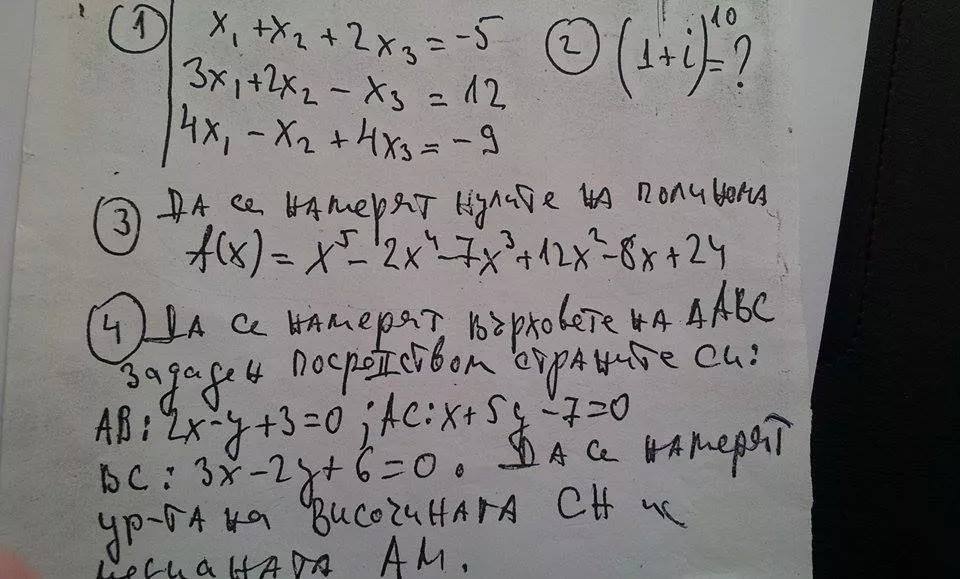 ① x₁ + x₂ + 2x₃ = -5
3x₁ + 2x₂ - x₃ = 12
4x₁ - x₂ + 4x₃ = -9
② (1+i)¹⁰ = ?
③ Да се намерят нулите на полинома
f(x) = x⁵ - 2x⁴ - 7x³ + 12x² - 8x + 24
④ Да се намерят върховете на ΔABC
зададен посредством страните си:
AB: 2x - y + 3 = 0 ; AC: x + 5y - 7 = 0
BC: 3x - 2y + 6 = 0. Да се намерят
ур-та на височината CH и
медианата AM.